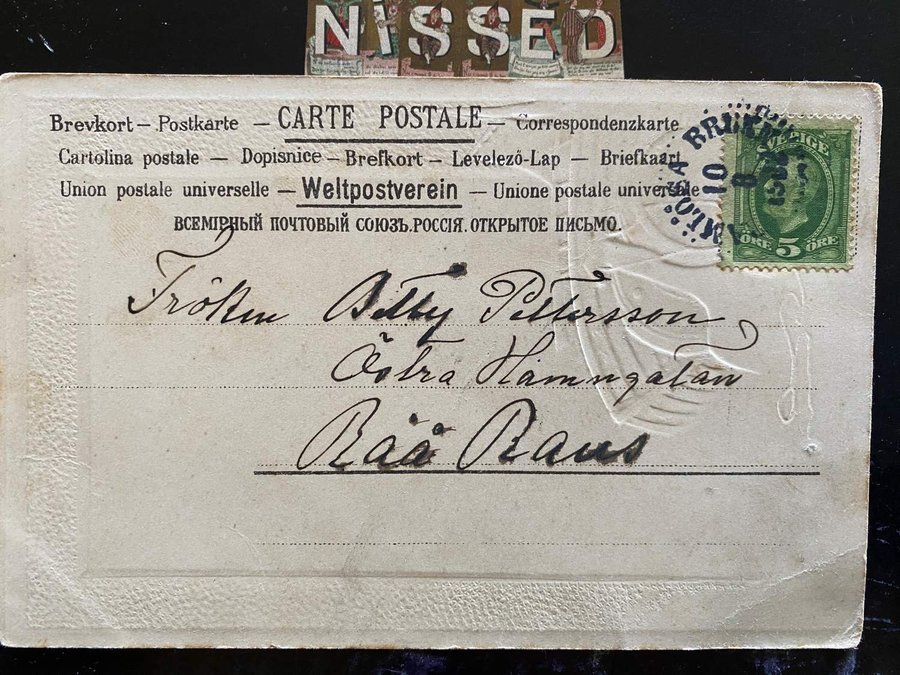 NISSED
Brevkort – Postkarte – CARTE POSTALE – Correspondenzkarte
Cartolina postale – Dopisnice – Brefkort – Levelező-Lap – Briefkaart
Union postale universelle – Weltpostverein – Unione postale universale
ВСЕМІРНЫЙ ПОЧТОВЫЙ СОЮЗЪ. РОССІЯ. ОТКРЫТОЕ ПИСЬМО.
SVERIGE
ÖRE 5 ÖRE
10
8
Fröken Betty Pettersson
Östra Hamngatan
Råå Raus